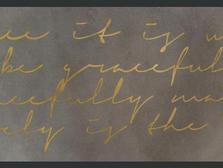 ee it is w
be graceful
cefully ma
ely is the